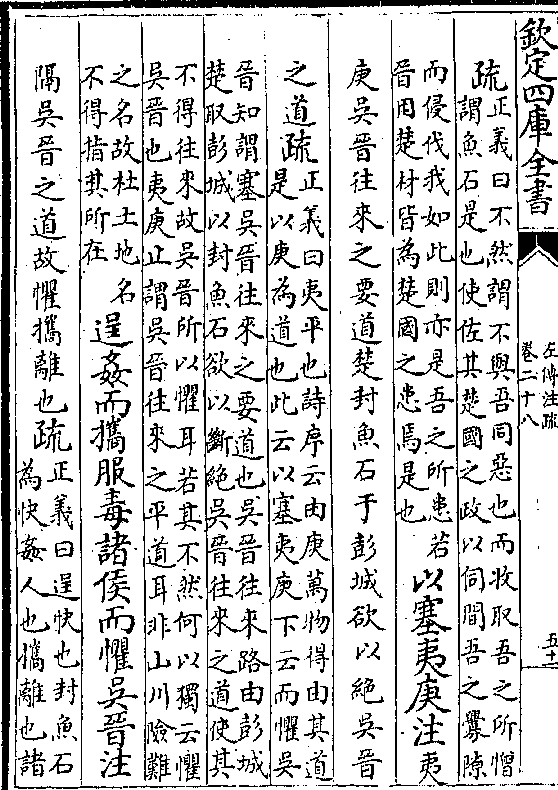 欽定四庫全書
左傳注疏
卷二十八
五十
疏
正義曰不然謂不與吾同惡也而收取吾之所憎
謂魚石是也使佐其楚國之政以伺間吾之釁隙
而侵伐我如此則亦是吾之所患若
晉用楚材皆為楚國之患焉是也
以塞夷庚注夷
庚吳晉往來之要道楚封魚石于彭城欲以絕吳晉
之道疏
正義曰夷平也詩序云由庚萬物得由其道
是以庚為道也此云以塞夷庚下云而懼吳
晉知謂塞吳晉往來之要道也吳晉往來路由彭城
楚取彭城以封魚石欲以斷絕吳晉往來之道使其
不得往來故吳晉所以懼耳若其不然何以獨云懼
吳晉也夷庚止謂吳晉往來之平道耳非山川險難
之名故杜土地名
不得指其所在
逞姦而攜服毒諸侯而懼吳晉注
隔吳晉之道故懼攜離也疏
正義曰逞快也封魚石
為快姦人也攜離也諸